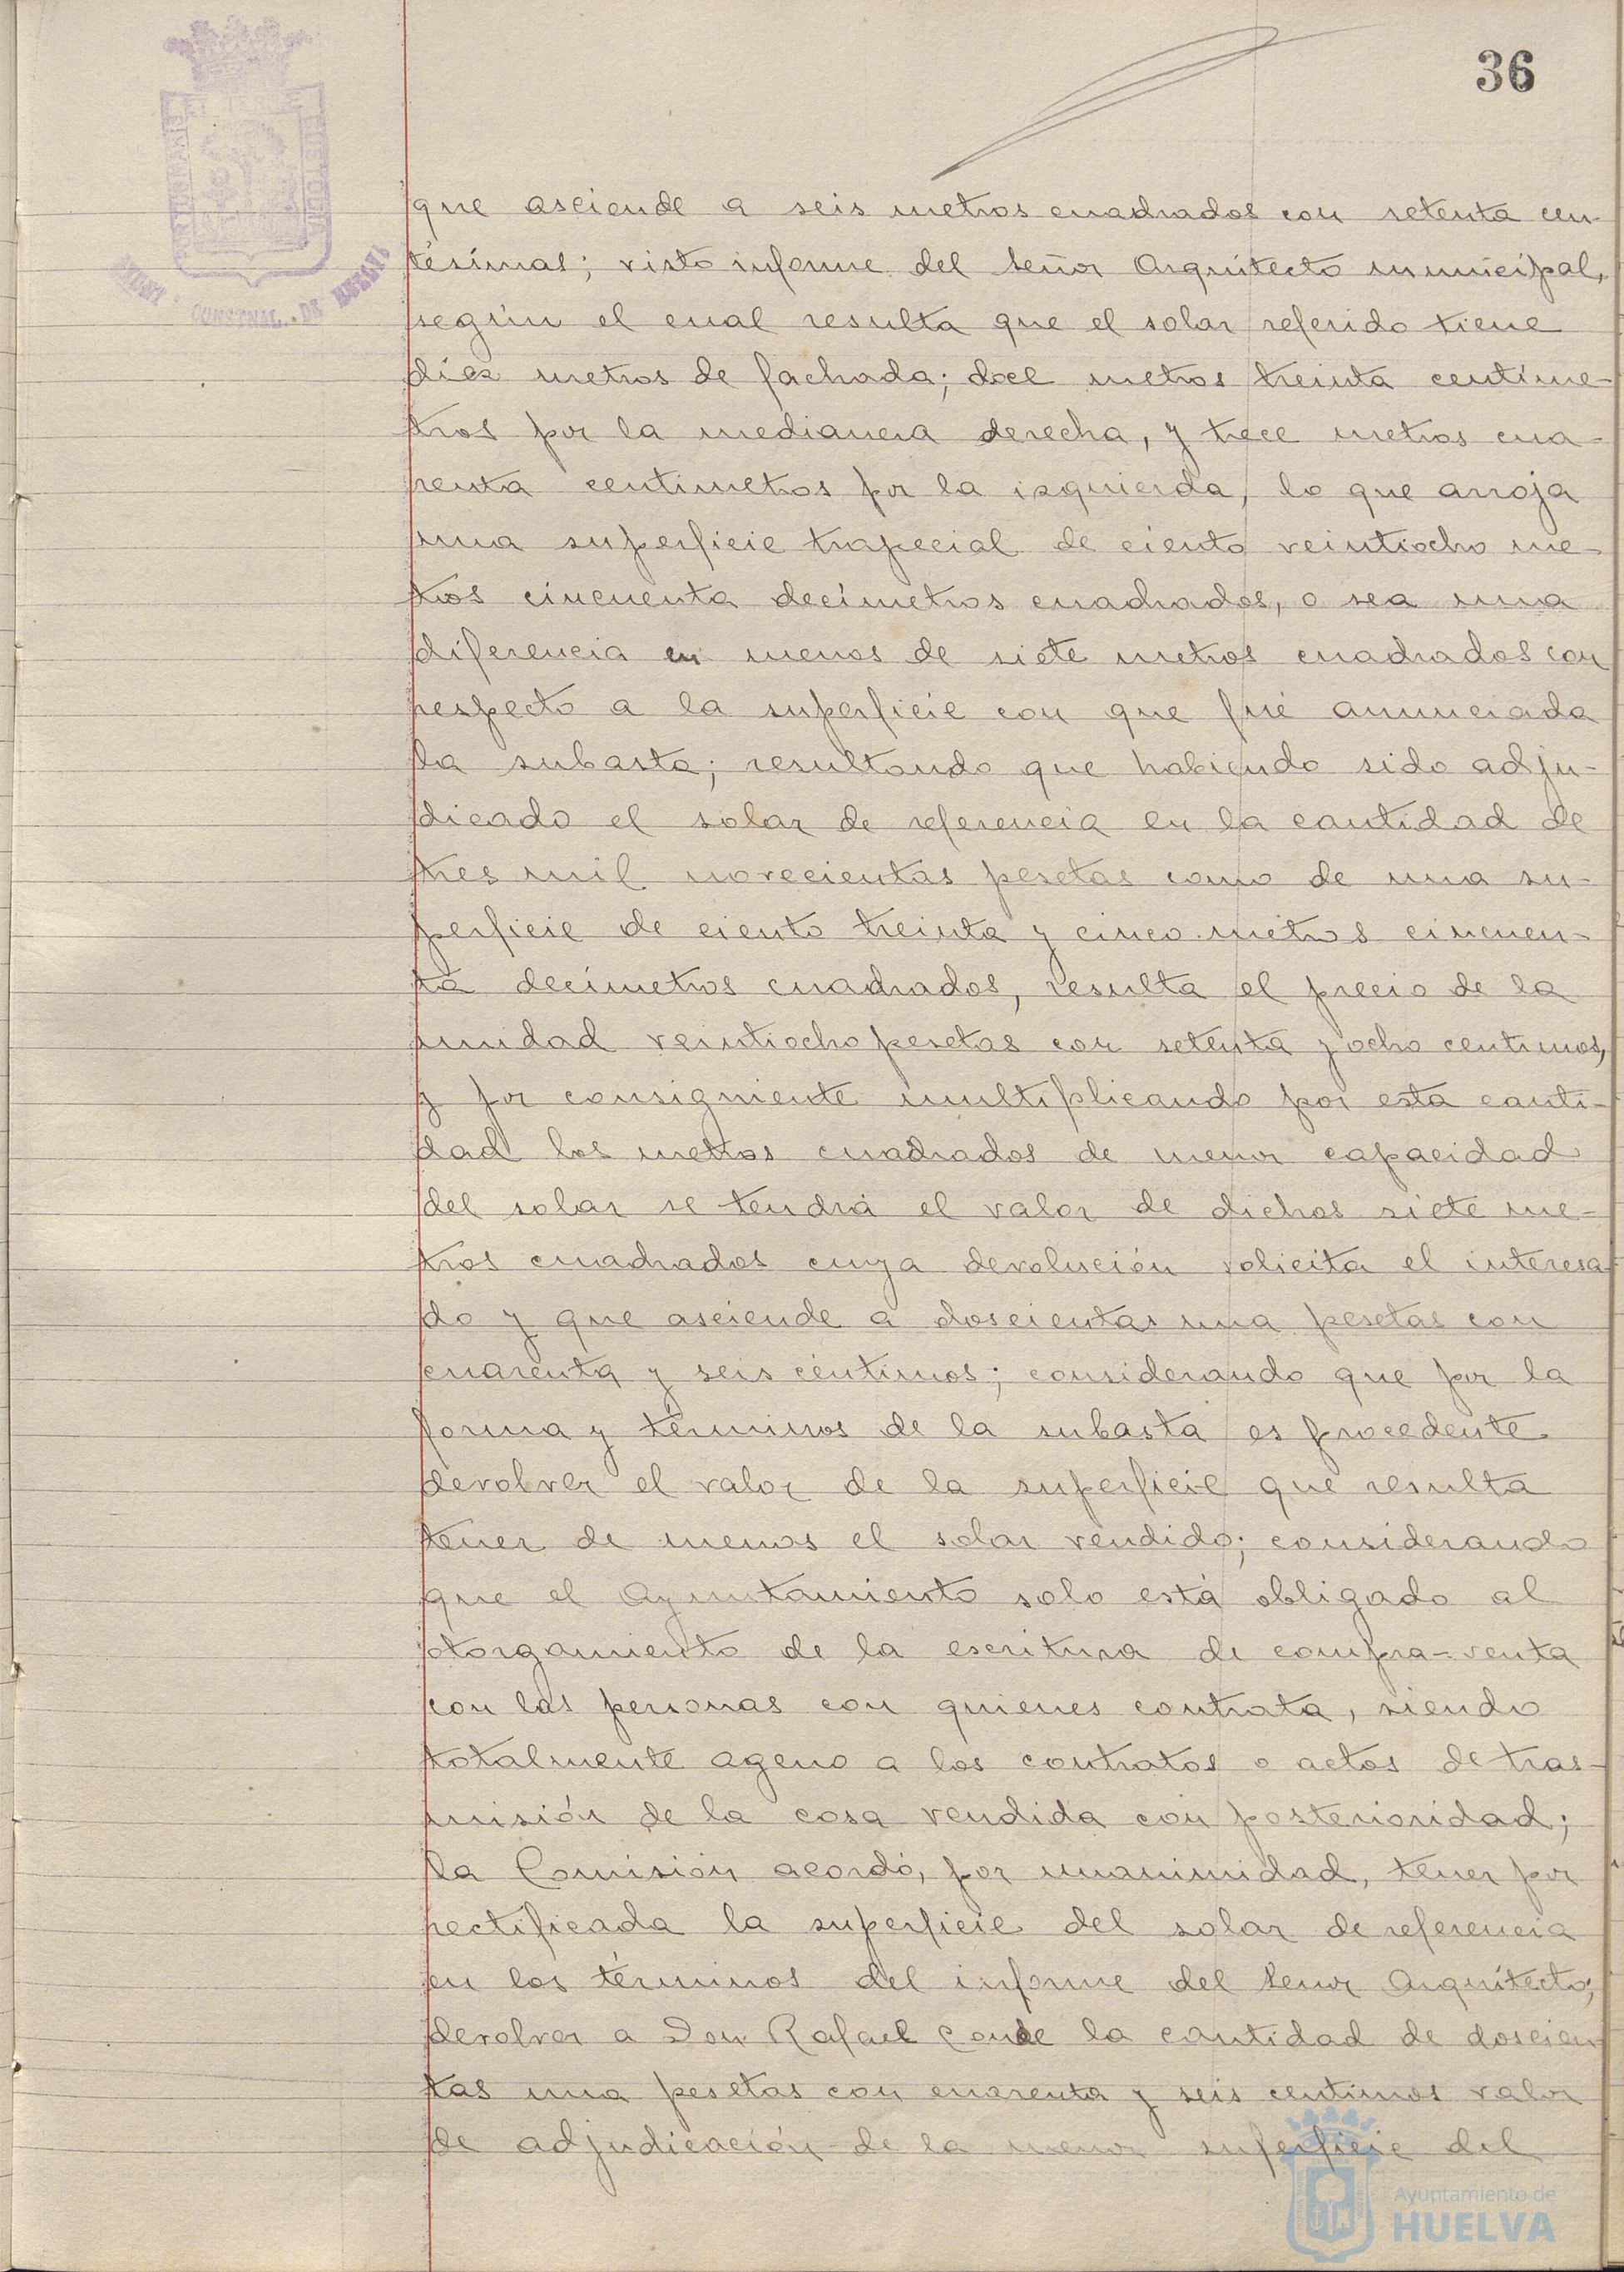 36
que asciende a seis metros cuadrados con setenta cen-
tésimas; visto informe del Señor Arquitecto municipal,
según el cual resulta que el solar referido tiene
diez metros de fachada; doce metros treinta centíme-
tros por la medianera derecha, y trece metros cua-
renta centimetros por la izquierda, lo que arroja
una superficie trapecial de ciento veintiocho me-
tros cincuenta decímetros cuadrados, o sea una
diferencia en menos de siete metros cuadrados con
respecto a la superficie con que fué anunciada
la subasta; resultando que habiendo sido adju-
dicado el solar de referencia en la cantidad de
tres mil novecientas pesetas como de una su-
perficie de ciento treinta y cinco metros cincuen-
ta decímetros cuadrados, resulta el precio de la
unidad veintiocho pesetas con setenta y ocho centimos,
y por consigniente multiplicando por esta canti-
dad los metros cuadrados de menor capacidad
del solar se tendrá el valor de dichos siete me-
tros cuadrados cuya devolución solicita el interesa-
do y que asciende a doscientas una pesetas con
cuarenta y seis céntimos; considerando que por la
forma y términos de la subasta es procedente
devolver el valor de la superficie que resulta
tener de menos el solar vendido; considerando
que el Ayuntamiento solo está obligado al
otorgamiento de la escritura de compra-venta
con las personas con quienes contrata, siendo
totalmente ageno a los contratos o actos de tras-
misión de la cosa vendida con posterioridad;
la Comisión acordó, por unanimidad, tener por
rectificada la superficie del solar de referencia
en los términos del informe del Señor Arquitecto;
devolver a Don Rafael Conde la cantidad de doscien-
tas una pesetas con cuarenta y seis centimos valor
de adjudicación de la menor superficie del
CONSTNAL. DE HUELVA
Ayuntamiento de
HUELVA